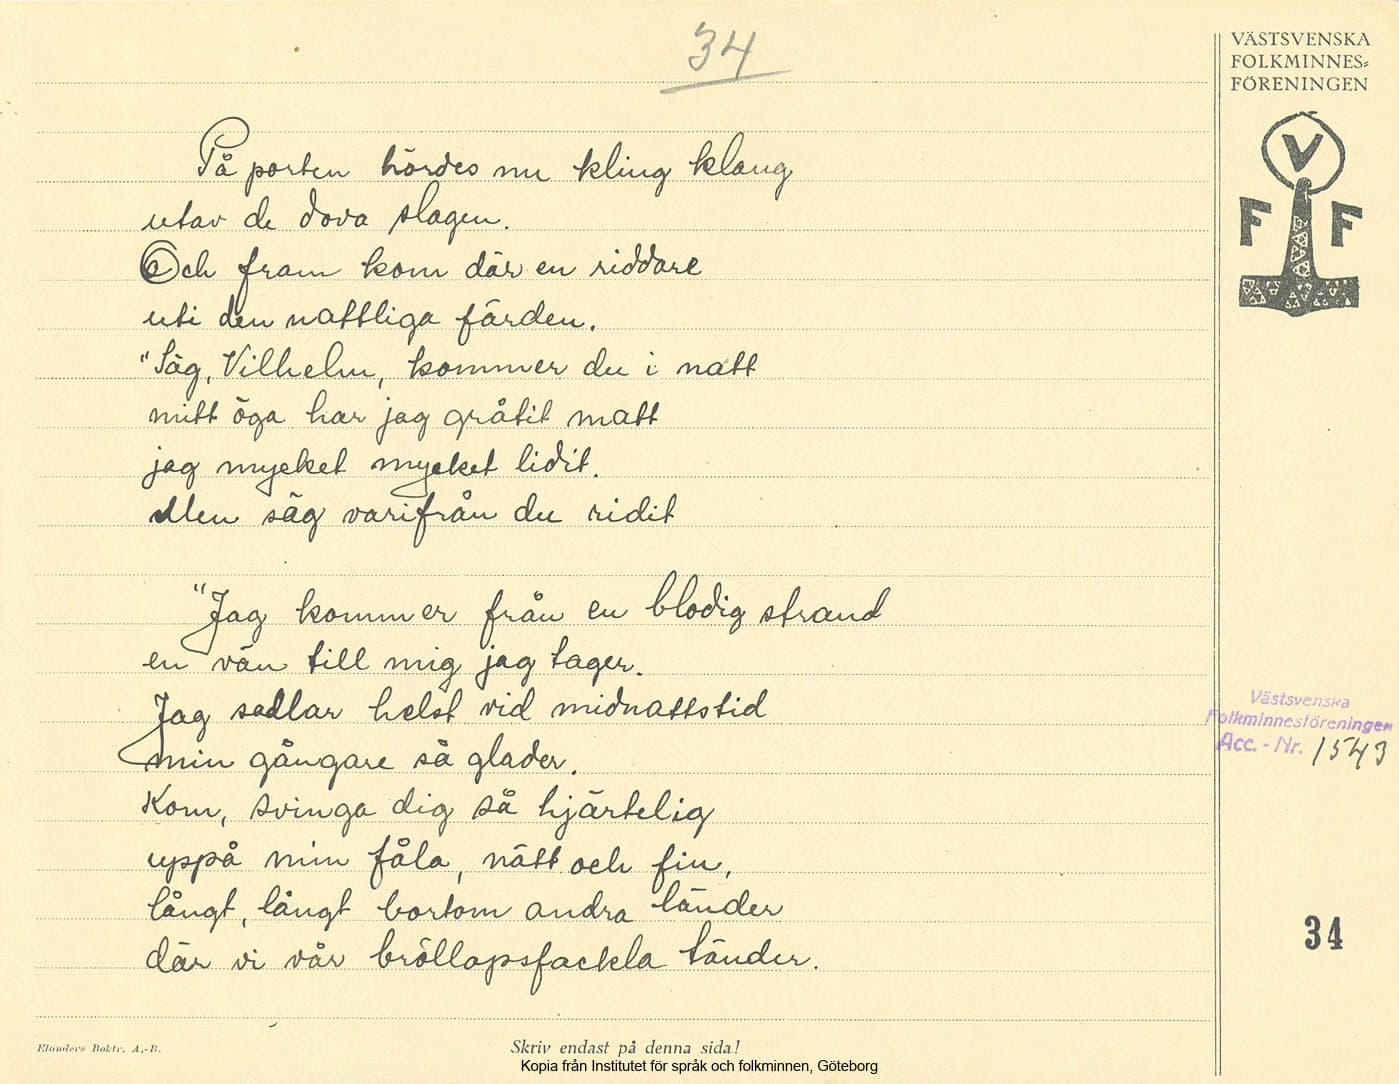 34
VÄSTSVENSKA
FOLKMINNES=
FÖRENINGEN
V
F F
På porten hördes nu kling klang
utav de dova slagen.
Och fram kom där en riddare
uti den nattliga färden.
"Säg, Vilhelm, kommer du i natt
mitt öga har jag gråtit matt
jag mycket mycket lidit.
Men säg varifrån du ridit
"Jag kommer från en blodig strand
en vän till mig jag tager.
Jag sadlar helst vid midnattstid
min gångare så glader.
Kom, svinga dig så hjärtelig
uppå min fåla, nätt och fin,
långt, långt bortom andra länder
där vi vår bröllopsfackla tänder.
Västsvenska
Folkminnesföreningen
Acc. - Nr. 1543
34
Elanders Boktr. A.-B.
Skriv endast på denna sida!
Kopia från Institutet för språk och folkminnen, Göteborg